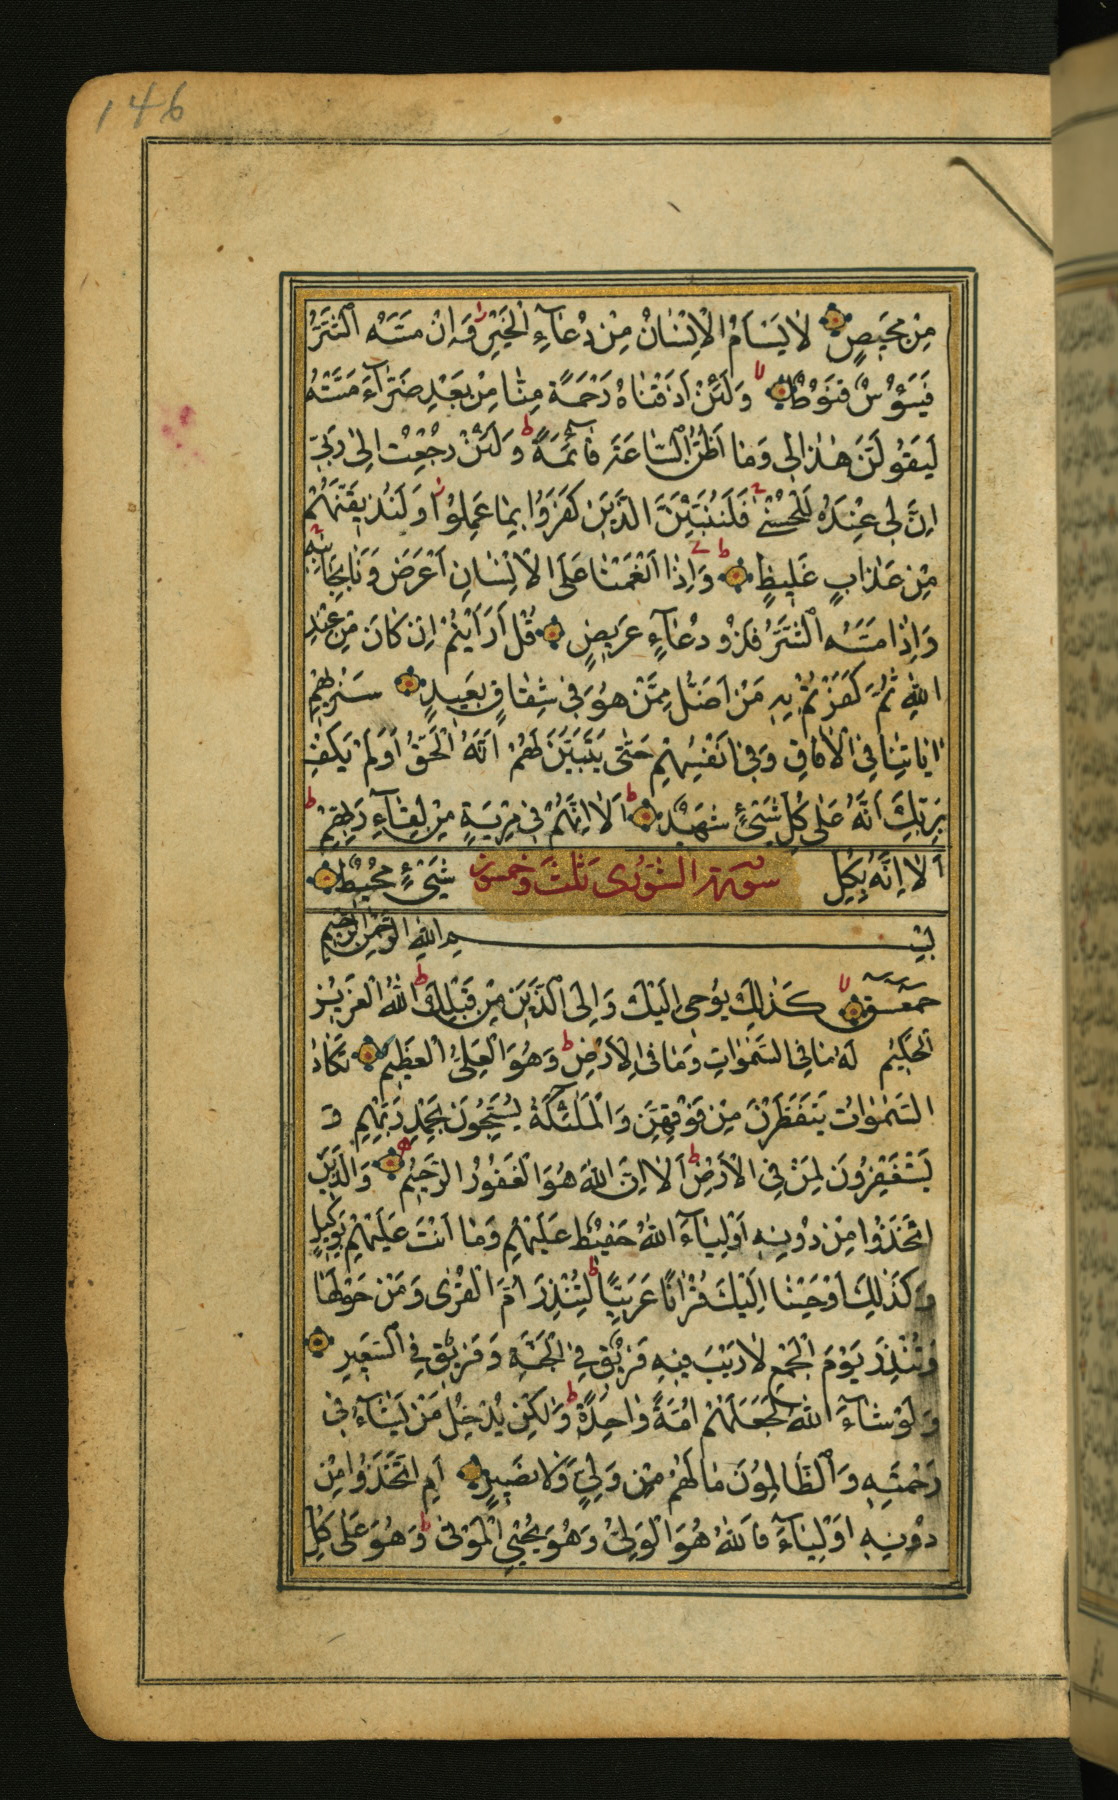 146
مِنْ مَحِيصٍ لَا يَسْأَمُ الْإِنْسَانُ مِنْ دُعَاءِ الْخَيْرِ وَإِنْ مَسَّهُ الشَّرُّ
فَيَؤُسٌ قَنُوطٌ وَلَئِنْ أَذَقْنَاهُ رَحْمَةً مِنَّا مِنْ بَعْدِ ضَرَّاءَ مَسَّتْهُ
لَيَقُولَنَّ هٰذَا لِي وَمَا أَظُنُّ السَّاعَةَ قَائِمَةً وَلَئِنْ رُجِعْتُ إِلَىٰ رَبِّي
إِنَّ لِي عِنْدَهُ لَلْحُسْنَىٰ فَلَنُنَبِّئَنَّ الَّذِينَ كَفَرُوا بِمَا عَمِلُوا وَلَنُذِيقَنَّهُمْ
مِنْ عَذَابٍ غَلِيظٍ وَإِذَا أَنْعَمْنَا عَلَى الْإِنْسَانِ أَعْرَضَ وَنَا بِجَانِبِهِ
وَإِذَا مَسَّهُ الشَّرُّ فَذُو دُعَاءٍ عَرِيضٍ قُلْ أَرَأَيْتُمْ إِنْ كَانَ مِنْ عِنْدِ
اللّٰهِ ثُمَّ كَفَرْتُمْ بِهِ مَنْ أَضَلُّ مِمَّنْ هُوَ فِي شِقَاقٍ بَعِيدٍ سَنُرِيهِمْ
اٰيَاتِنَا فِي الْاٰفَاقِ وَفِي أَنْفُسِهِمْ حَتّٰى يَتَبَيَّنَ لَهُمْ أَنَّهُ الْحَقُّ أَوَلَمْ يَكْفِ
بِرَبِّكَ أَنَّهُ عَلٰى كُلِّ شَيْءٍ شَهِيدٌ أَلَا إِنَّهُمْ فِي مِرْيَةٍ مِنْ لِقَاءِ رَبِّهِمْ
أَلَا إِنَّهُ بِكُلِّ سورة الشورى ثلث وخمسون شَيْءٍ مُحِيطٌ
بِسْمِ اللّٰهِ الرَّحْمٰنِ الرَّحِيمِ
حٰمٓعٓسٓقٓ كَذٰلِكَ يُوحِي إِلَيْكَ وَإِلَى الَّذِينَ مِنْ قَبْلِكَ اللّٰهُ الْعَزِيزُ
الْحَكِيمُ لَهُ مَا فِي السَّمٰوَاتِ وَمَا فِي الْأَرْضِ وَهُوَ الْعَلِيُّ الْعَظِيمُ تَكَادُ
السَّمٰوَاتُ يَتَفَطَّرْنَ مِنْ فَوْقِهِنَّ وَالْمَلٰئِكَةُ يُسَبِّحُونَ بِحَمْدِ رَبِّهِمْ وَ
يَسْتَغْفِرُونَ لِمَنْ فِي الْأَرْضِ أَلَا إِنَّ اللّٰهَ هُوَ الْغَفُورُ الرَّحِيمُ وَالَّذِينَ
اتَّخَذُوا مِنْ دُونِهِ أَوْلِيَاءَ اللّٰهُ حَفِيظٌ عَلَيْهِمْ وَمَا أَنْتَ عَلَيْهِمْ بِوَكِيلٍ
وَكَذٰلِكَ أَوْحَيْنَا إِلَيْكَ قُرْاٰنًا عَرَبِيًّا لِتُنْذِرَ أُمَّ الْقُرٰى وَمَنْ حَوْلَهَا
وَتُنْذِرَ يَوْمَ الْجَمْعِ لَا رَيْبَ فِيهِ فَرِيقٌ فِي الْجَنَّةِ وَفَرِيقٌ فِي السَّعِيرِ
وَلَوْ شَاءَ اللّٰهُ لَجَعَلَهُمْ أُمَّةً وَاحِدَةً وَلٰكِنْ يُدْخِلُ مَنْ يَشَاءُ فِي
رَحْمَتِهِ وَالظَّالِمُونَ مَا لَهُمْ مِنْ وَلِيٍّ وَلَا نَصِيرٍ أَمِ اتَّخَذُوا مِنْ
دُونِهِ أَوْلِيَاءَ فَاللّٰهُ هُوَ الْوَلِيُّ وَهُوَ يُحْيِي الْمَوْتٰى وَهُوَ عَلٰى كُلِّ